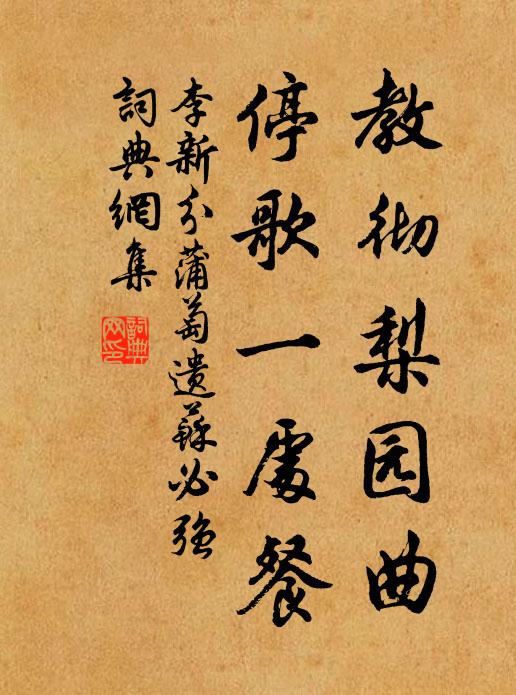 教彻梨园曲
停歌一處餐
李新分蒲萄遗蘇必强
詞典網集
詞典网印